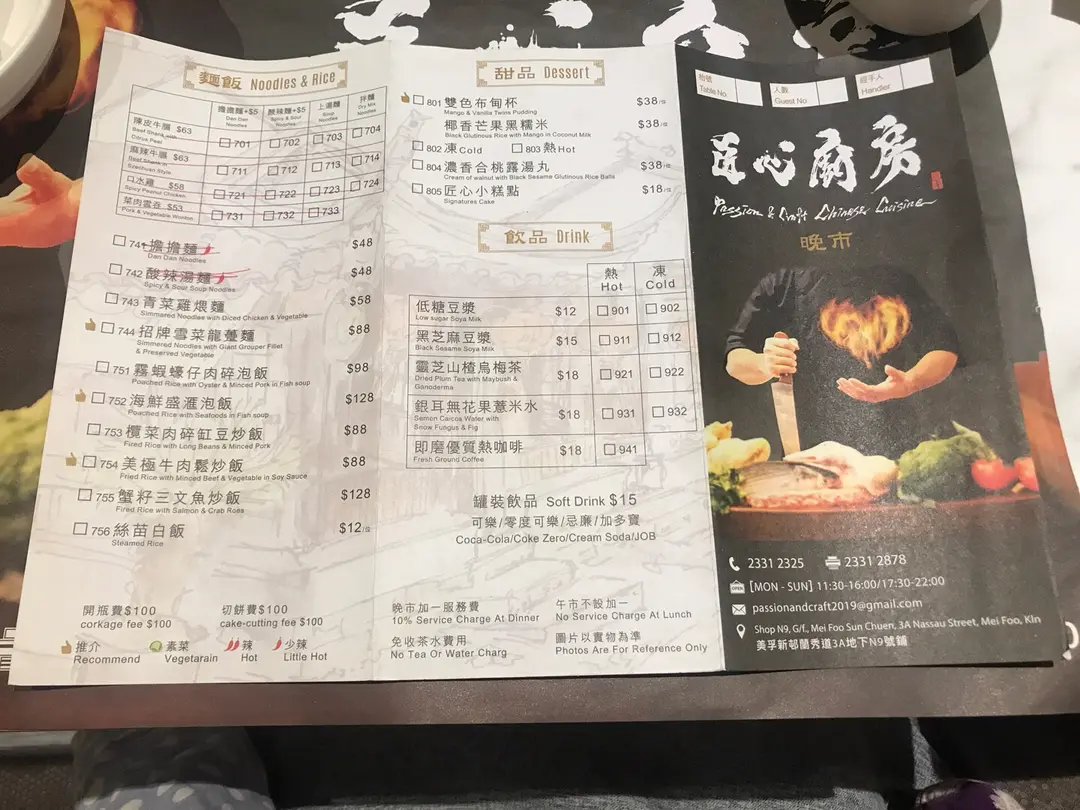 麵飯 Noodles & Rice
擔擔麵+$5
Dan Dan
Noodles
酸辣麵+$5
Spicy & Sour
Noodles
上湯麵
Soup
Noodles
拌麵
Dry Mix
Noodles
陳皮牛腩 $63
Beef Shank with
Citrus Peel
701
702
703
704
麻辣牛腩 $63
Beef Shank in
Szechuan Style
711
712
713
714
口水雞 $58
Spicy Peanut Chicken
721
722
723
724
菜肉雲吞 $53
Pork & Vegetable Wonton
731
732
733
741 擔擔麵 $48
Dan Dan Noodles
742 酸辣湯麵 $48
Spicy & Sour Soup Noodles
743 青菜雞煨麵 $58
Simmered Noodles with Diced Chicken & Vegetable
744 招牌雪菜龍躉麵 $88
Simmered Noodles with Giant Grouper Fillet
& Preserved Vegetable
751 霧蝦蠔仔肉碎泡飯 $98
Poached Rice with Oyster & Minced Pork in Fish soup
752 海鮮盛滙泡飯 $128
Poached Rice with Seafoods in Fish soup
753 欖菜肉碎缸豆炒飯 $88
Fired Rice with Long Beans & Minced Pork
754 美極牛肉鬆炒飯 $88
Fried Rice with Minced Beef & Vegetable in Soy Sauce
755 蟹籽三文魚炒飯 $128
Fired Rice with Salmon & Crab Roes
756 絲苗白飯 $12/位
Steamed Rice
開瓶費$100
corkage fee $100
切餅費$100
cake-cutting fee $100
推介
Recommend
素菜
Vegetarain
辣
Hot
少辣
Little Hot
甜品 Dessert
801 雙色布甸杯 $38/位
Mango & Vanilla Twins Pudding
椰香芒果黑糯米 $38/位
Black Glutinous Rice with Mango in Coconut Milk
802 凍Cold 803 熱Hot
804 濃香合桃露湯丸 $38/位
Cream of walnut with Black Sesame Glutinous Rice Balls
805 匠心小糕點 $18/位
Signatures Cake
飲品 Drink
熱
Hot
凍
Cold
低糖豆漿 $12 901 902
Low sugar Soya Milk
黑芝麻豆漿 $15 911 912
Black Sesame Soya Milk
靈芝山楂烏梅茶 $18 921 922
Dried Plum Tea with Maybush &
Ganoderma
銀耳無花果薏米水 $18 931 932
Semon Caicos Water with
Snow Fungus & Fig
即磨優質熱咖啡 $18 941
Fresh Ground Coffee
罐裝飲品 Soft Drink $15
可樂/零度可樂/忌廉/加多寶
Coca-Cola/Coke Zero/Cream Soda/JOB
晚市加一服務費
10% Service Charge At Dinner
午市不設加一
No Service Charge At Lunch
免收茶水費用
No Tea Or Water Charg
圖片以實物為準
Photos Are For Reference Only
枱號
Table No.
人數
Guest No
經手人
Handler
匠心廚房
Passion & Craft Chinese Cuisine
晚市
2331 2325 2331 2878
OPEN [MON - SUN] 11:30-16:00/17:30-22:00
passionandcraft2019@gmail.com
Shop N9, G/f., Mei Foo Sun Chuen, 3A Nassau Street, Mei Foo, Kln
美孚新邨蘭秀道3A地下N9號鋪